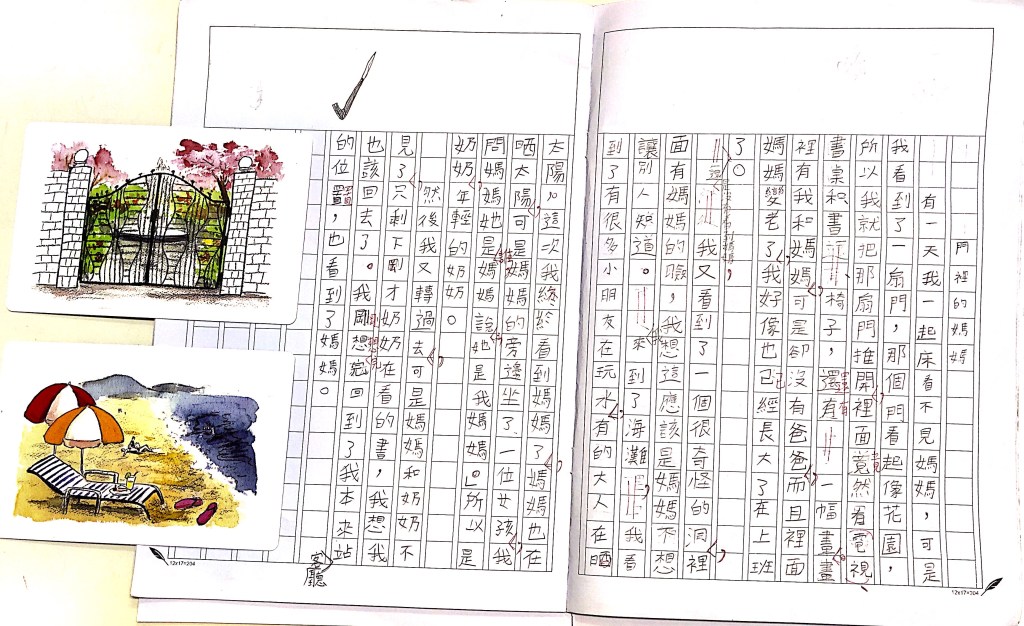 門裡的媽媽
有一天我一起床看不見媽媽，可是
我看到了一扇門，那個門看起像花園，
所以我就把那扇門推開裡面竟然看電視
書桌和書　椅子，還有一幅畫畫
裡有我和媽媽可是卻沒有爸爸而且裡面
媽媽變老了我好像也已經長大了在上班
了。
我又看到了一個很奇怪的洞裡
面有媽媽的臉，我想這應該是媽媽不想
讓別人知道。來到了海灘，我看
到了有很多小朋友在玩水有的大人在晒
太陽。這次我終於看到媽媽了媽媽也在
晒太陽可是媽媽的旁邊坐了一位女孩我
問媽媽她是誰媽媽說她是我媽媽。所以是
奶奶年輕的奶奶。
然後我又轉過去可是媽媽和奶奶不
見了只剩下剛才奶奶在看的書，我想我
也該回去了。我剛想完回到了我本來站
的位置，也看到了媽媽。
客廳
12x17=204
12x17=204